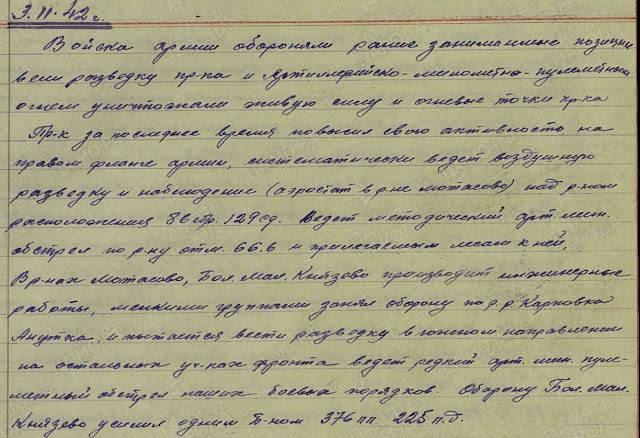 3.11.42 г.
Войска армии обороняли ранее занимаемые позиции
вели разведку пр-ка и Артиллерийско-минометно-пулеметным
огнем уничтожали живую силу и огневые точки пр-ка
Пр-к за последнее время повысил свою активность на
правом фланге армии, систематически ведет воздушную
разведку и наблюдение (аэростат в р-не мотасово) над р-ном
расположения 86 стр. 129 сд. Ведет методический арт. мин.
обстрел по р-ну отм. 66.6 и прилегаемым лесам к ней,
В р-нах Мотасово, Бол. Мал. Князево производит инжинерные
работы, мелкими группами занял оборону по р. р Карповка
Анутка, и пытается вести разведку в южном направлении
на остальных уч-ках фронта ведет редкий арт. мин. пуле-
метный обстрел наших боевых порядков. Оборону Бол. Мал.
Князево усилил одним Б-ном 376 пп. 225 п.д.